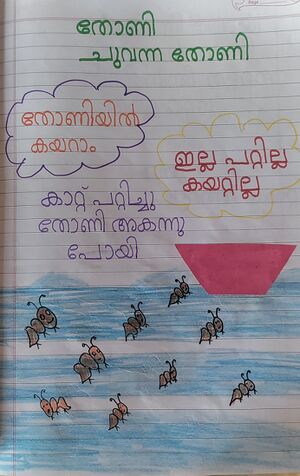 തോണി
ചുവന്ന തോണി
തോണിയിൽ
കയറാം
ഇല്ല പറ്റില്ല
കയറ്റില്ല
കാറ്റ് പറ്റിച്ചു
തോണി അകന്നു
പോയി